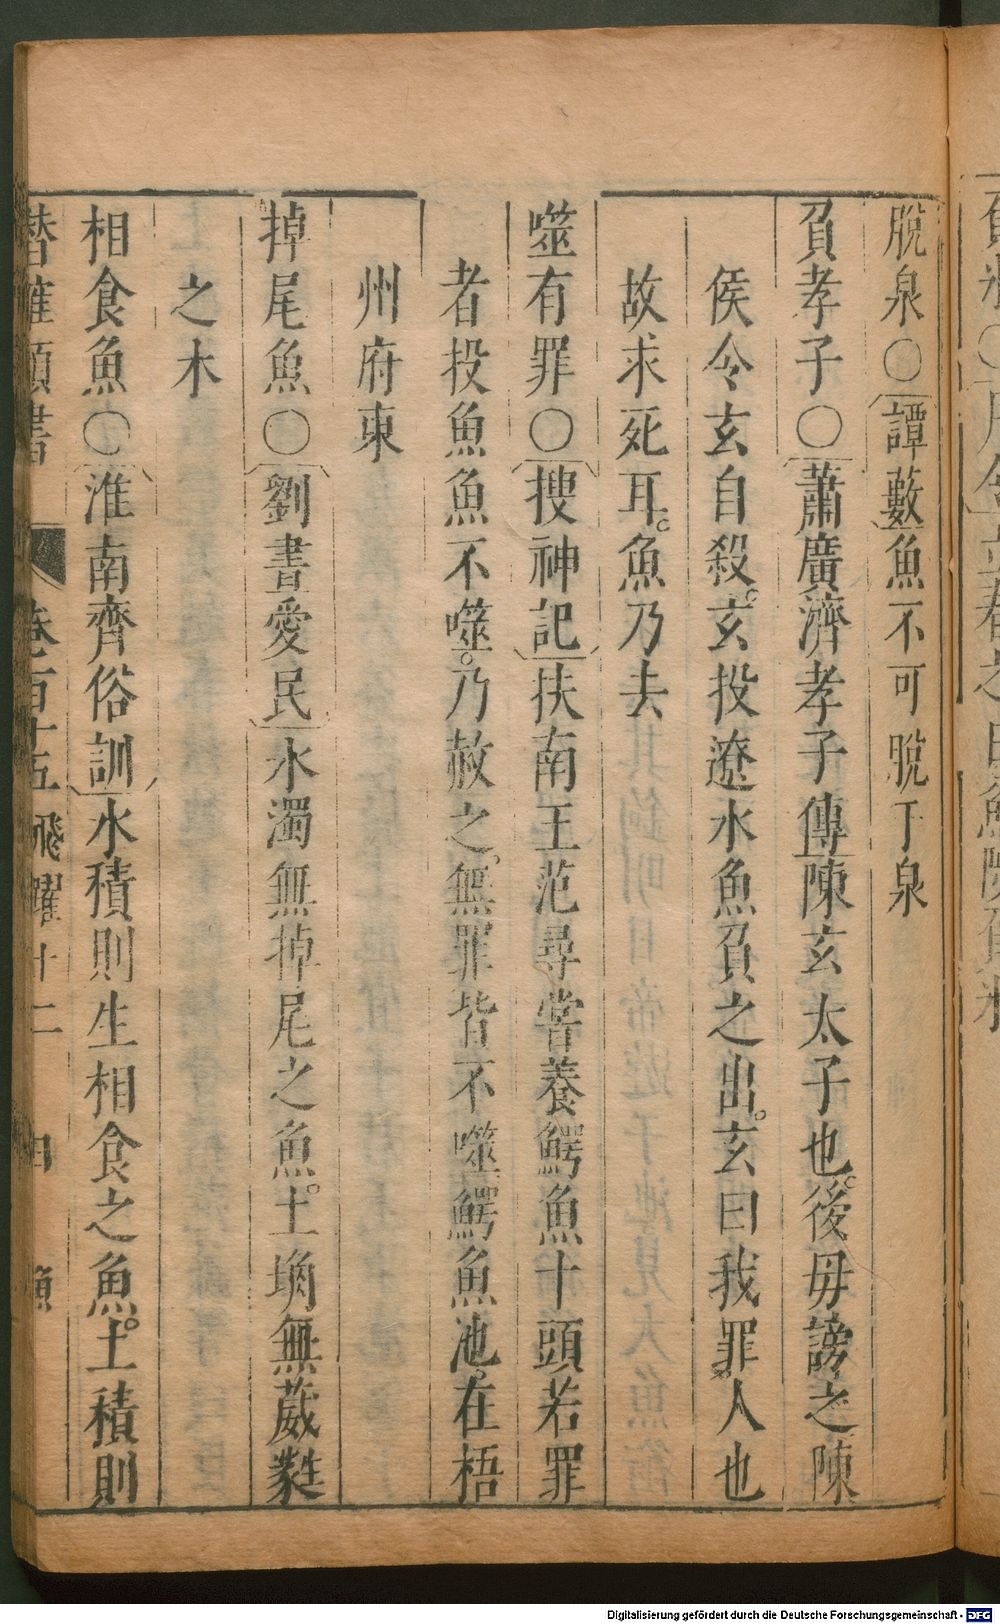 脫泉○譚藪魚不可脫于泉
負孝子○蕭廣濟孝子傳陳玄太子也後毋謗之陳
侯令玄自殺玄投遼水魚負之出玄曰我罪人也
故求死耳魚乃去
噬有罪○搜神記扶南王范尋嘗養鰐魚十頭若罪
者投魚魚不噬乃赦之無罪皆不噬鰐魚池在梧
州府東
掉尾魚○劉晝愛民水濁無掉尾之魚土埆無葳蕤
之木
相食魚○淮南齊俗訓水積則生相食之魚土積則
潛確類書 卷百十五 飛躍十二
Digitalisierung gefördert durch die Deutsche Forschungsgemeinschaft - DFG